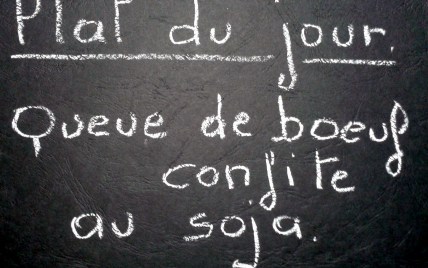 Plat du jour.
Queue de boeuf
confite
au soja.